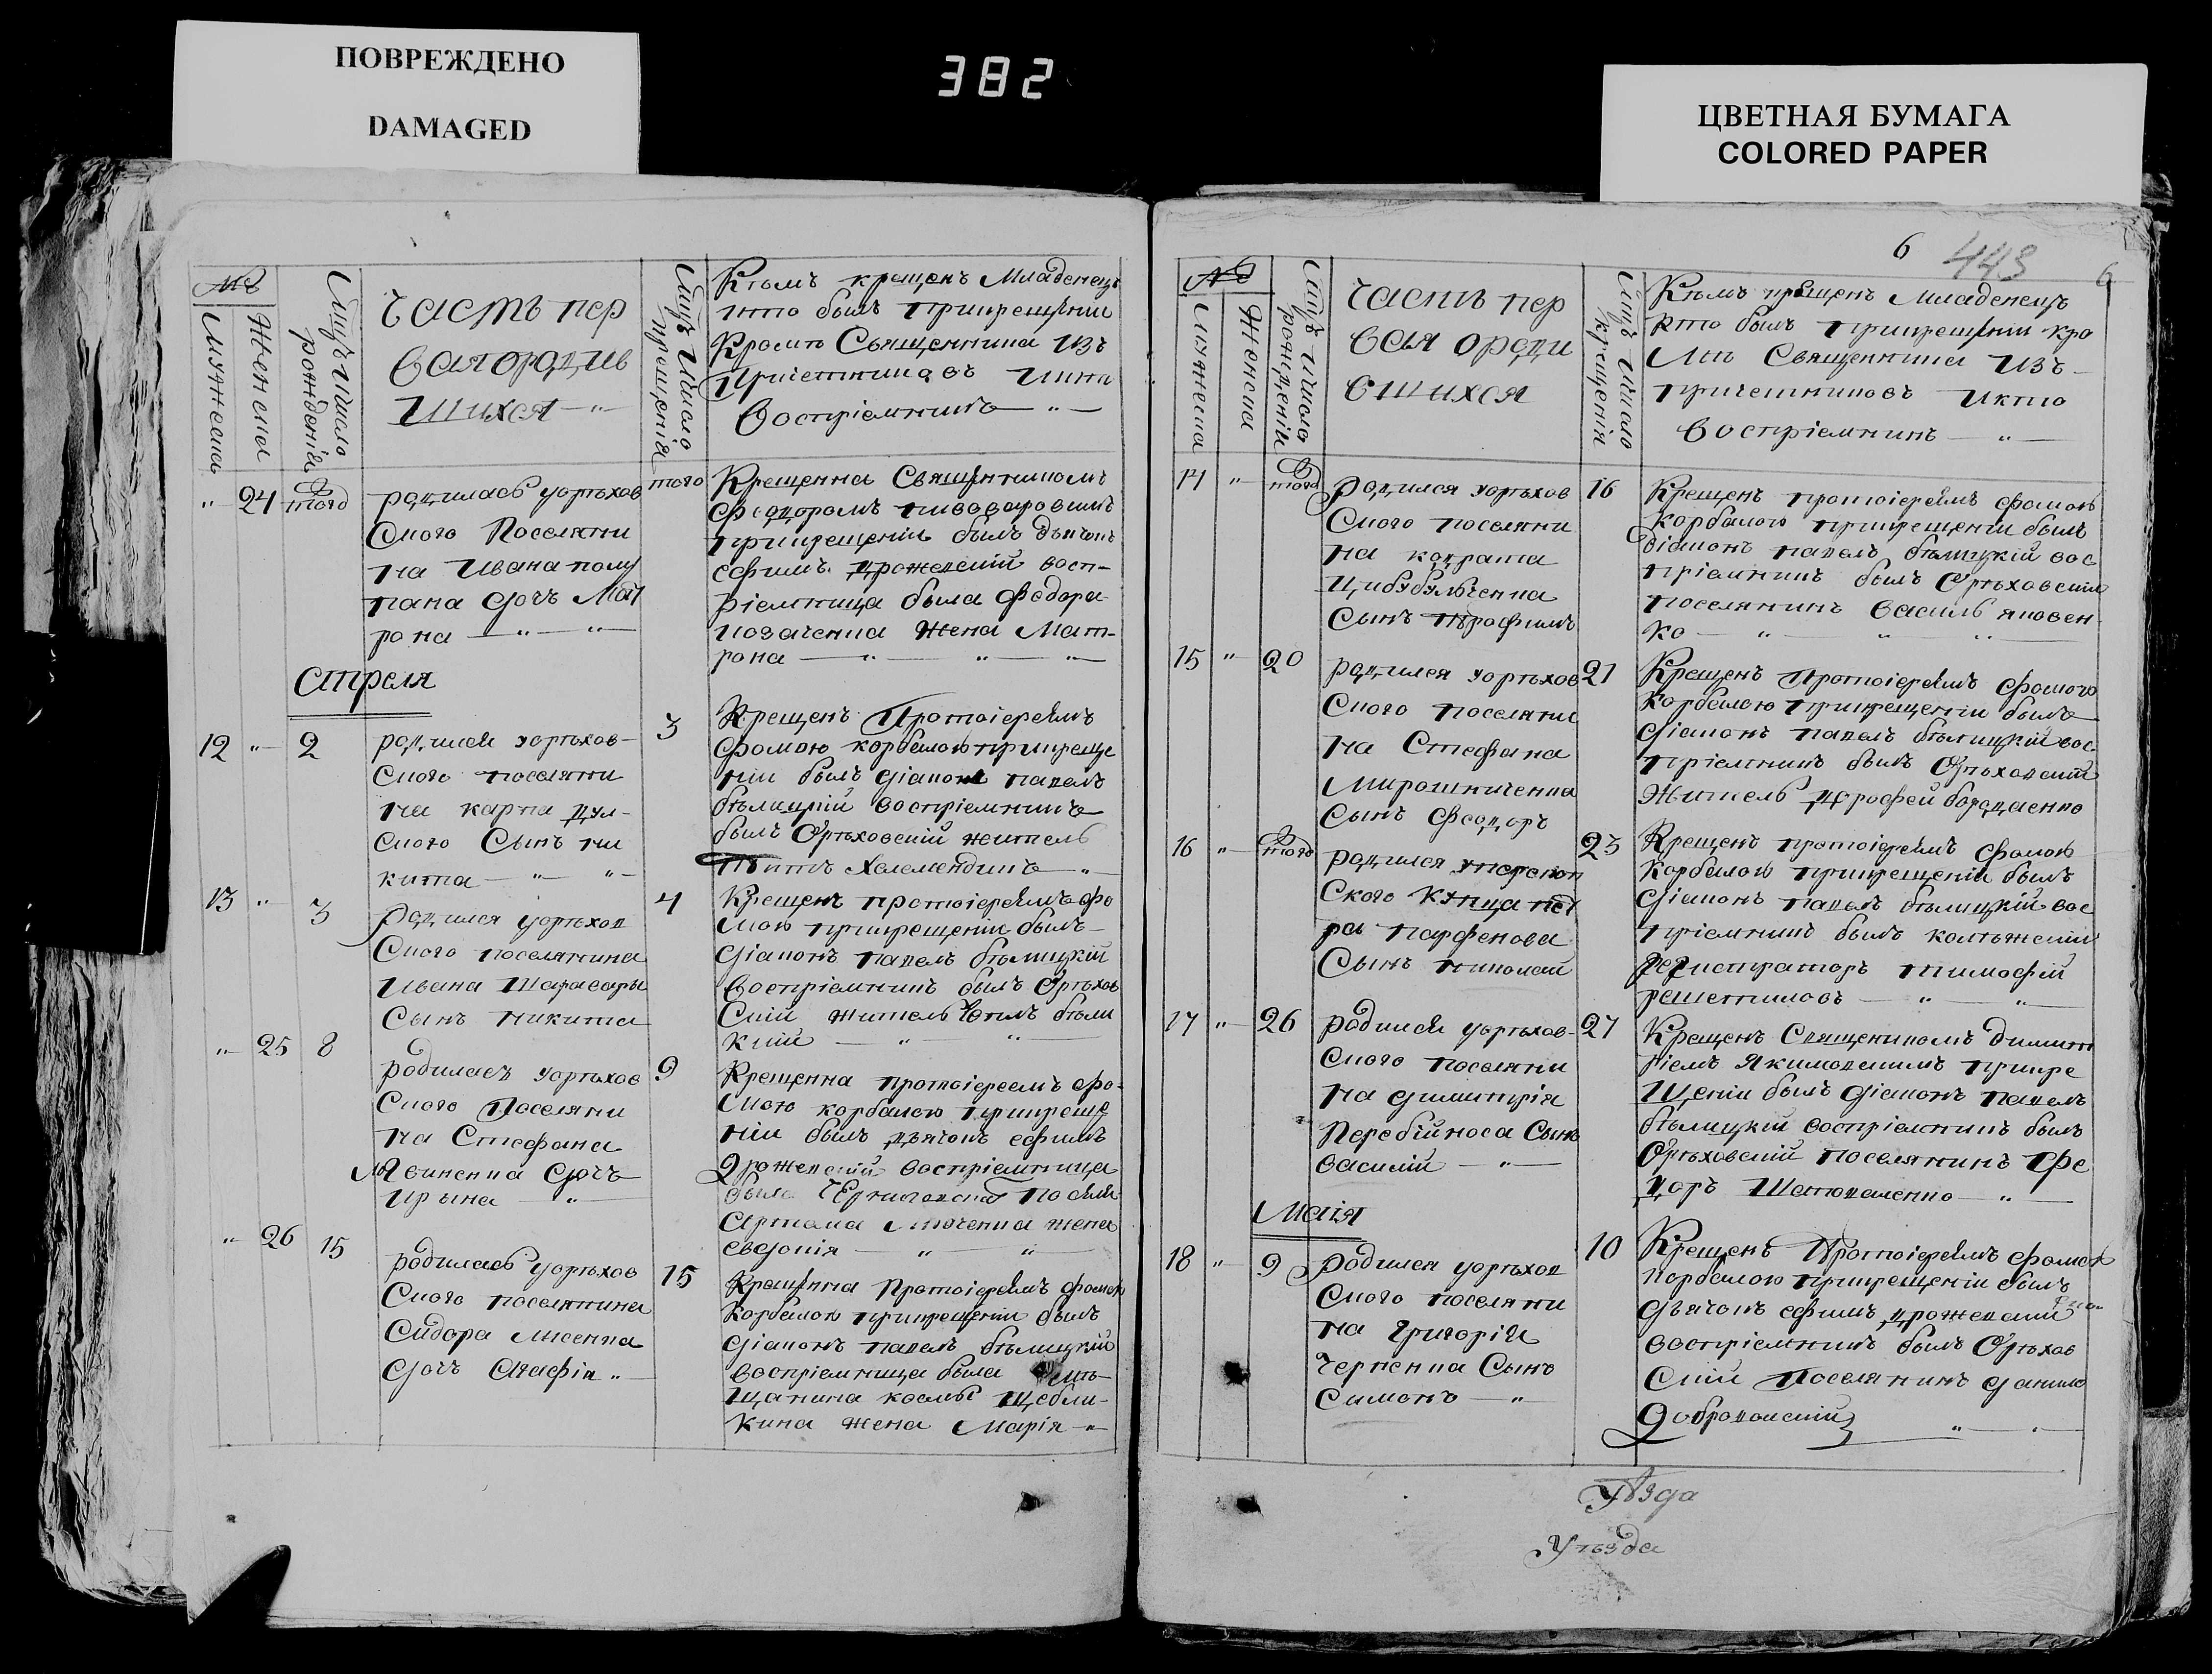 ПОВРЕЖДЕНО
DAMAGED
382
ЦВЕТНАЯ БУМАГА
COLORED PAPER
№
Мужеска
Женска
Мцъ Число
рожденія
Часть пер
вая о родив
шихся — " —
Мцъ Число
крещенія
Кѣмъ крещенъ Младенецъ
и кто былъ при крещеніи
Кромѣ Священника изъ
Причетниковъ и кто
воспріемникъ — " —
" 24 того
родилась у орѣхов
ского Поселяни
на Ивана
дочь Мат
рона — " — "
того
Крещенна Священникомъ
феодоромъ пивоваровымъ
при крещеніи былъ дьячокъ
ефимъ дрожевскій восп-
ріемница была Федора
жена Мат-
рона — " — " — "
Апреля
12 " 2
родился у орѣхов-
ского поселяни
на карпа дул-
ского Сынъ ни
кита — " — " —
3
Крещенъ Протоіереемъ
фомою корбатою при креще
ніи былъ діаконъ павелъ
бѣлицкій воспріемникъ
былъ Орѣховскій житель
Титъ — " —
13 " 3
родился у орѣхов
ского поселянина
Ивана Шарабары
Сынъ никита
4
Крещенъ протоіереемъ фо
мою при крещеніи былъ
діаконъ павелъ бѣлицкій
воспріемникъ былъ Орѣхов
скій житель бѣли
кій — " — " —
" 25 8
родилась у орѣхов
ского Поселяни
на Стефана
дочь
Ирына — " —
9
Крещенна протоіереемъ фо-
мою корбатою при креще
ніи былъ дьячокъ ефимъ
Дрожевскій воспріемница
была
жена
евдокія — " — " —
" 26 15
родилась у орѣхов
ского поселянина
Сидора Лисенка
дочь Агафія " —
15
Крещенна Протоіереемъ фомою
корбатою при крещеніи былъ
діаконъ павелъ бѣлицкій
воспріемница была мѣ-
щанина космы Щебли-
кина жена Марія — " —
6 443 6
№
Мужеска
Женска
Мцъ Число
рожденія
Часть пер
вая о роди
вшихся
Мцъ Число
крещенія
Кѣмъ крещенъ Младенецъ
кто былъ при крещеніи кро
мѣ Священника изъ
причетниковъ и кто
воспріемникъ — " —
14 " того
Родился у орѣхов
ского поселяни
на кодрата
Цибульченка
Сынъ трофимъ
16
Крещенъ протоіереемъ фомою
корбатою при крещеніи былъ
діаконъ павелъ бѣлицкій вос
пріемникъ былъ Орѣховскій
поселянинъ василь яковен
ко — " — " — " —
15 " 20
родился у орѣхов
ского поселяни
на Стефана
Мирошниченка
Сынъ Феодоръ
21
Крещенъ Протоіереемъ фомою
корбатою при крещеніи былъ
діаконъ павелъ бѣлицкій вос-
пріемникъ былъ Орѣховскій
житель Дорофей бородаенко
16 " того
родился
ского купца пет
ра парфенова
Сынъ николай
23
Крещенъ протоіереемъ фомою
корбатою при крещеніи былъ
діаконъ павелъ бѣлицкій вос
пріемникъ былъ колѣжскій
регистраторъ тимофей
решетиловъ — " — " —
17 " 26
родился у орѣхов-
ского поселяни
на димитрія
Перебійноса Сынъ
василій — " —
27
Крещенъ Священикомъ димит
ріемъ Якимовскимъ при кре
щеніи былъ діаконъ павелъ
бѣлицкій воспріемникъ былъ
Орѣховскій поселянинъ Фе
доръ Шаповаленко — " —
Маія
18 " 9
Родился у орѣхов
ского поселяни
на Григорія
Черненка Сынъ
Симонъ — " —
10
Крещенъ Протоіереемъ фомою
корбатою при крещеніи былъ
дьячокъ ефимъ дрожевскій
воспріемникъ былъ Орѣхов
скій Поселянинъ данило
Добровольскій — " — " —
Уѣзда
Уѣзда